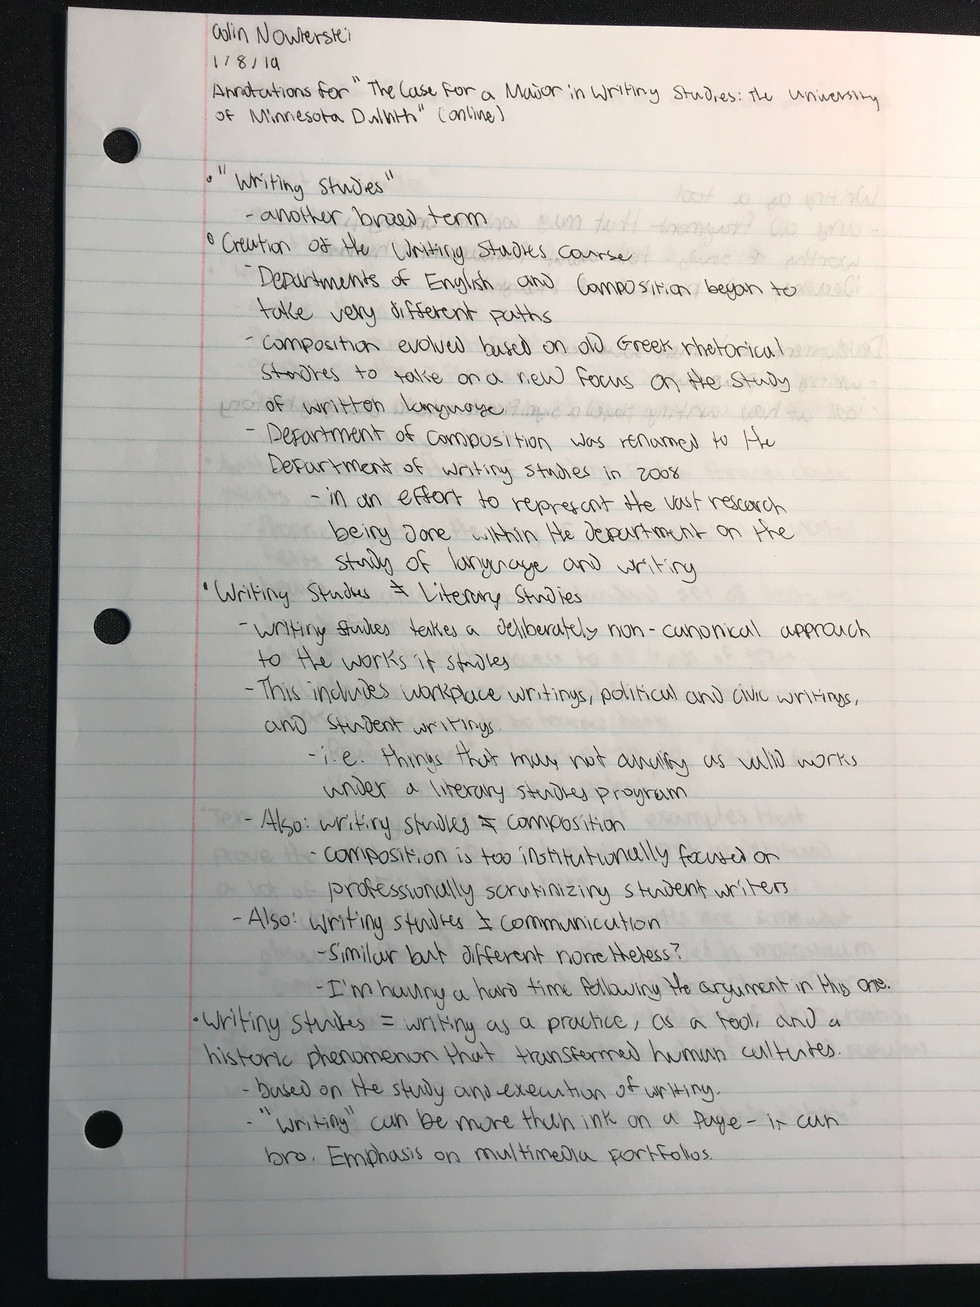 Colin Nowierski
1/8/19
Annotations for "The Case for a Major in Writing Studies: The University
of Minnesota Duluth" (online)
• "Writing Studies"
- another broad term
• Creation of the Writing Studies course
- Departments of English and Composition began to
take very different paths
- Composition evolved based on old Greek rhetorical
studies to take on a new focus on the study
of written language
- Department of composition was renamed to the
Department of writing studies in 2008
- in an effort to represent the vast research
being done within the department on the
study of language and writing
• Writing Studies ≠ Literary Studies
- writing studies takes a deliberately non-canonical approach
to the works it studies
- This includes workplace writings, political and civic writings,
and student writings.
- i.e. things that may not qualify as valid works
under a literary studies program
- Also: writing studies ≠ composition
- composition is too institutionally focused on
professionally scrutinizing student writers
- Also: writing studies ≠ communication
- Similar but different nonetheless?
- I'm having a hard time following the argument in this one.
• Writing Studies = writing as a practice, as a tool, and a
historic phenomenon that transformed human cultures.
- based on the study and execution of writing.
- "writing" can be more than ink on a page - it can
bro. Emphasis on multimedia portfolios.